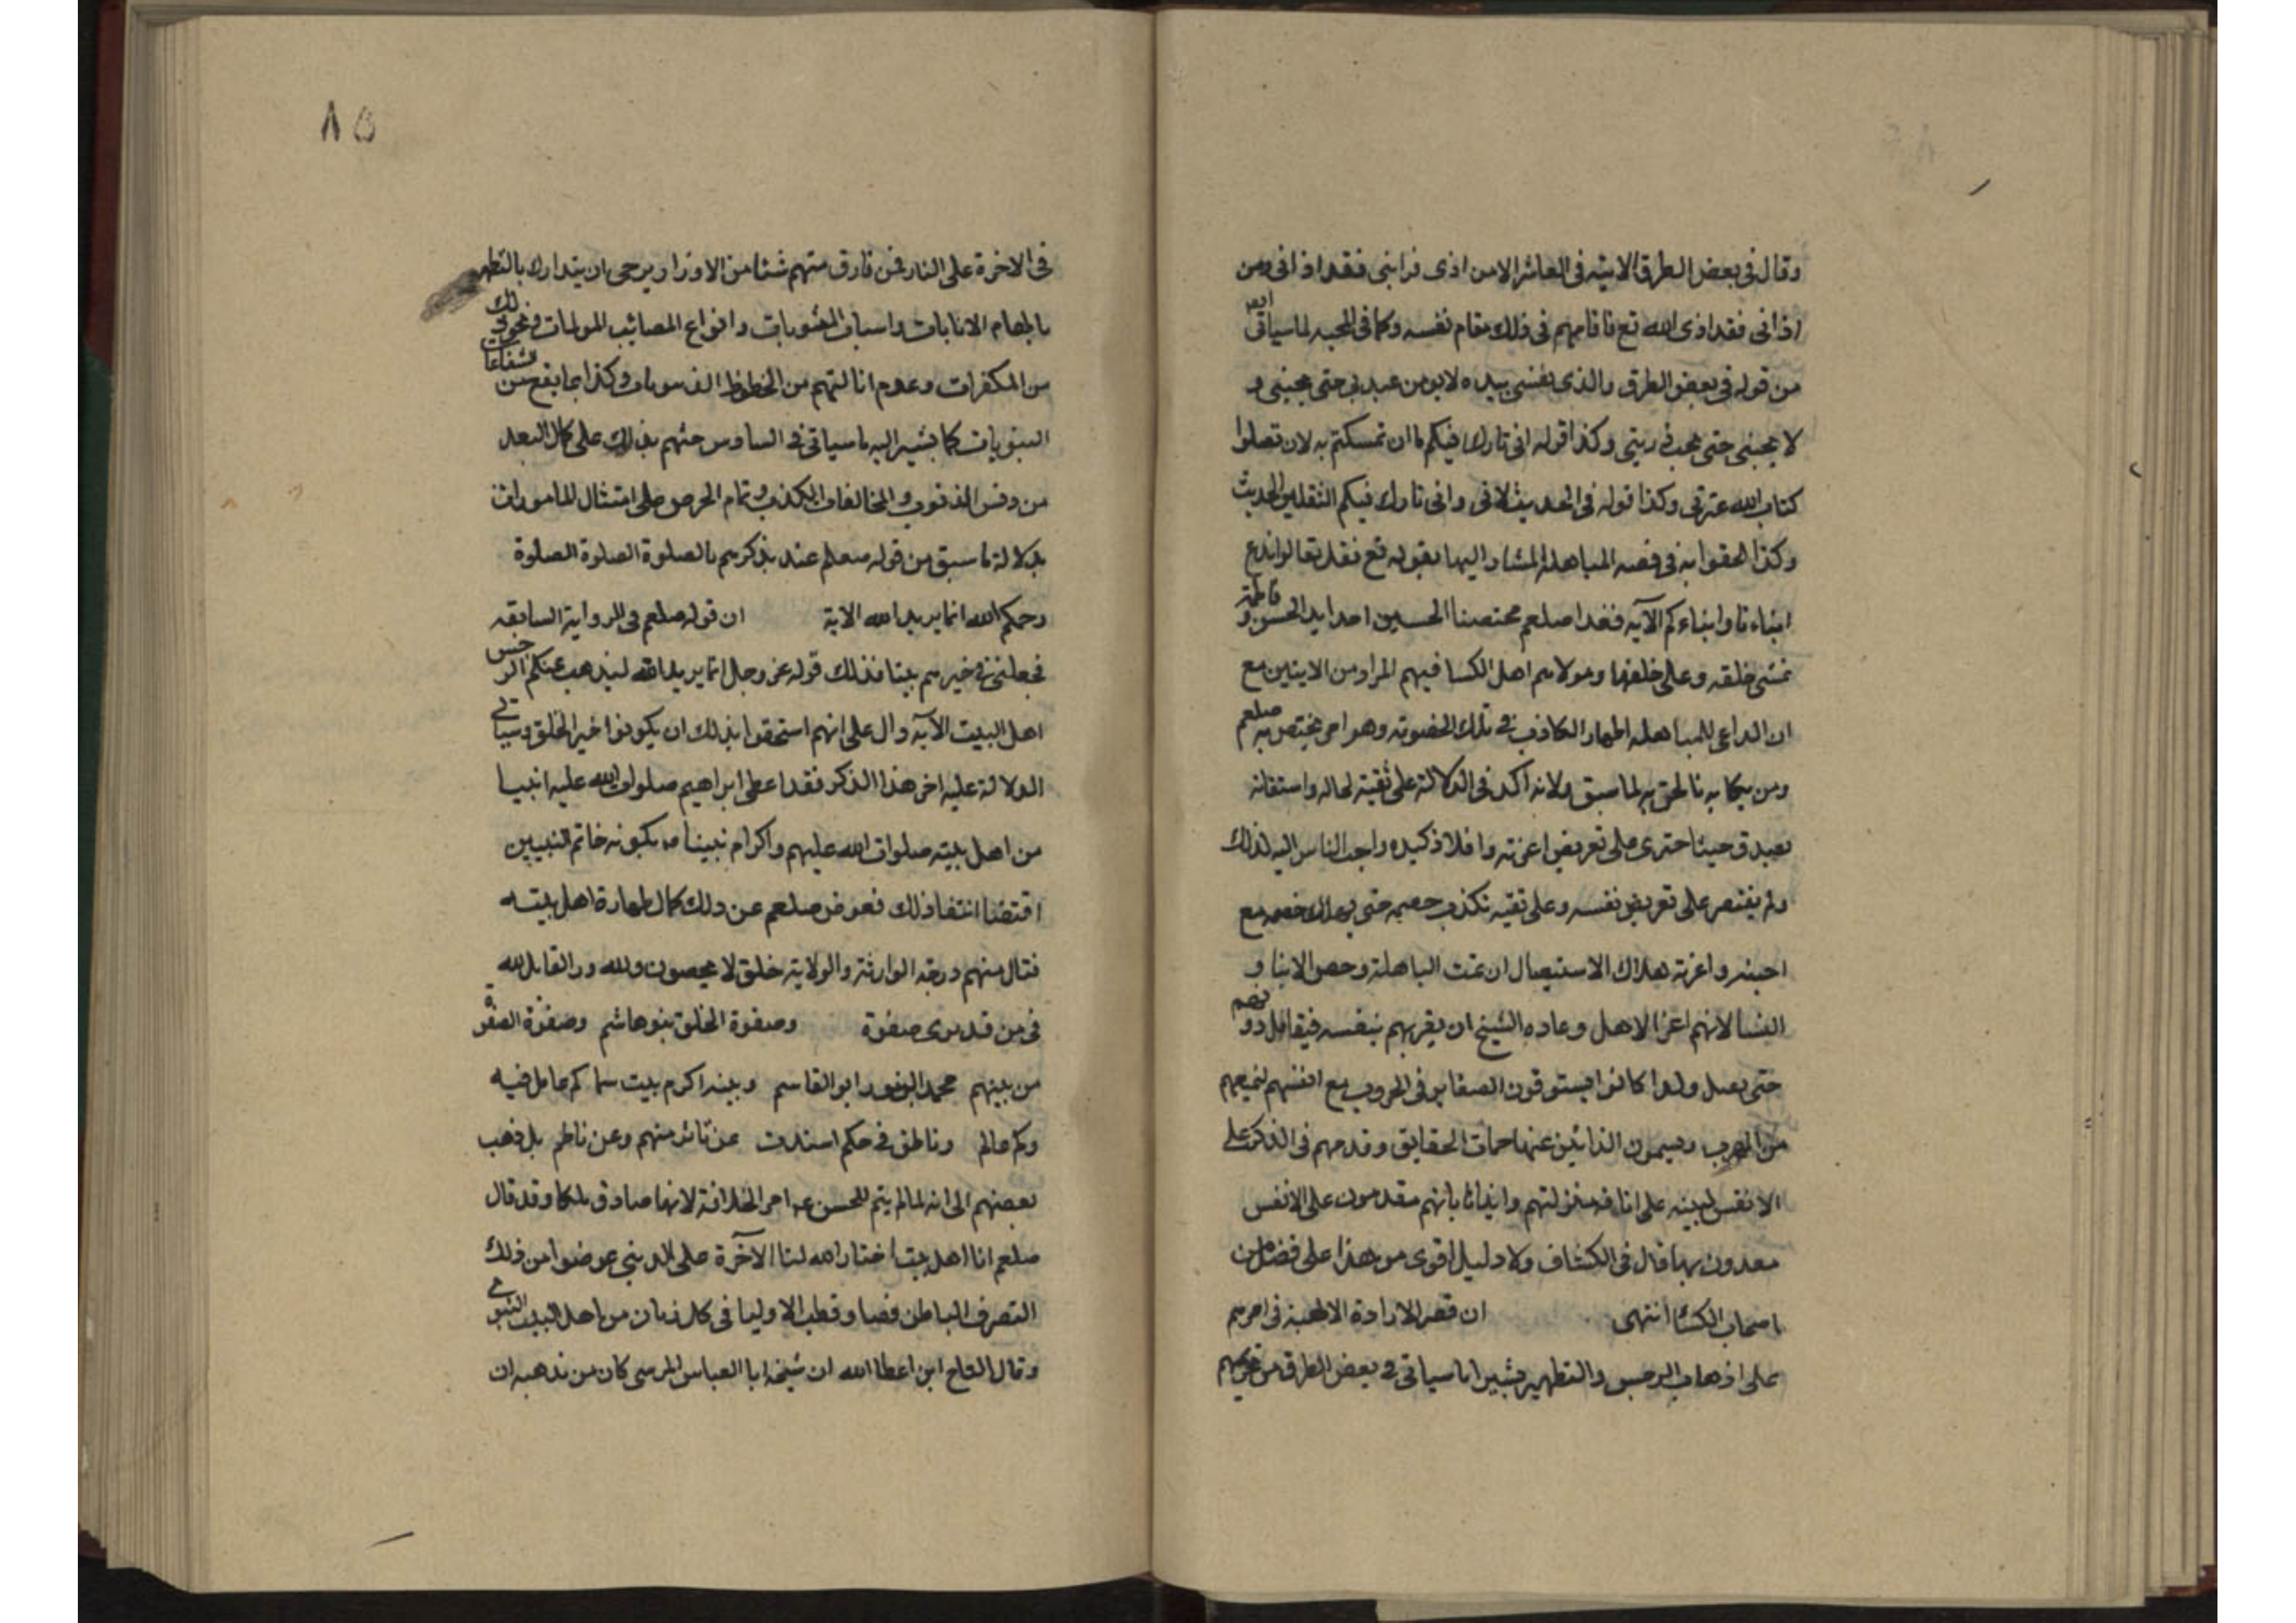 وقال في بعض الطرق الاتيه في العاشر الا من اذى قرابتي فقد اذاني ومن
اذاني فقد اذى الله تع فاقامهم في ذلك مقام نفسه وكما في المحبه لما سياتي
من قوله في بعض الطرق والذي نفسي بيده لا يومن عبد بي حتى يحبني و
لا يحبني حتى يحب ذريتي وكذا قوله اني تارك فيكم ما ان تمسكتم به لن تضلوا
كتاب الله عترتي وكذا قوله في الحديث الاتي واني تارك فيكم الثقلين الحديث
وكذا الحقوا به في قصه المباهله المشار اليها بقوله تع فقل تعالوا ندع
ابناءنا وابناءكم الآيه فغدا صلعم محتضنا الحسين اخذا بيد الحسن وفاطمة
تمشي خلفه وعلى خلفها وهولاء هم اهل الكسا فهم المراد من الايتين مع
ان الداعي للمباهله اظهار الكاذب في تلك الخصومه وهو امر يختص به صلعم
ومن يكاذبه فالحق به لما سبق ولانه اكد في الدلالة على ثقيته لحاله واستقانه
بصدق حيث اجترى على تعريض اعزته وافلاذ كبده واحب الناس اليه لذلك
ولم يقتصر على تعريض نفسه وعلى ثقيه بكذب خصمه حتى يهلك خصمه مع
احبته واعزته هلاك الاستيصال ان تمت المباهلة وخص الابنا و
النسا لانهم اعز الاهل وعاده الشيخ ان يقربهم بنفسه فيقاتل دونهم
حتى يقتل ولهذا كانوا يستوقون الصغاير في الحروب مع انفسهم لتمنعهم
من الهرب ويسمون الذائين عنها حمات الحقايق وقدمهم في الذكر على
الانفس لينبه على انافه منزلتهم وايذانا بانهم مقدمون على الانفس
مفدون بها قال في الكشاف ولا دليل اقوى من هذا على فضل من
اصحاب الكسا انتهى ان قصر الارادة الالهيه في امرهم
على اذهاب الرجس والتطهير يشير الى ما سياتي في بعض الطرق من تحريمهم
٨٥
في الاخرة على النار فمن قارف منهم شئا من الاوزار يرجى ان يتدارك بالتطهير
بالهام الانابات واسباب المثوبات وانواع المصائب المولمات ونحو ذلك
من المكفرات وعدم انالتهم من الحظوظ الدنيويات وكذا بما يقع من شفاعات
النبويات كما يشير اليه ما سياتي في السادس حثهم بذلك على كمال البعد
من دنس الذنوب والمخالفات الكذب وتمام الحرص على امتثال المامورات
بدلالة ما سبق من قوله صلعم عند تذكيرهم بالصلوة الصلوة الصلوة
رحمكم الله انما يريد الله الاية ان قوله صلعم في الرواية السابقه
فجعلني في خيرهم بيتا فذلك قوله عز وجل انما يريد الله ليذهب عنكم الرجس
اهل البيت الآيه دال على انهم استحقوا بذلك ان يكونوا خير الخلق وسياتي
الدلالة عليه اخر هذا الذكر فقد اعطى ابراهيم صلوات الله عليه انبيا
من اهل بيته صلوات الله عليهم واكرام نبينا صـ بكونه خاتم النبيين
اقتضا انتفا ذلك فعوض صلعم عن ذلك كمال طهارة اهل بيته
فنال منهم درجة الوارثة والولاية خلق لا يحصون ولله در القايل لله
في من قد برى صفوة وصفوة الخلق بنو هاشم وصفوة الصفوة
من بينهم محمد النور ابو القاسم وبيته اكرم بيت سما كم عامل فيه
وكم عالم وناطق في حكم اسندت عن ناثر منهم وعن ناظم بل ذهب
بعضهم الى انه لما لم يتم للحسن عـ امر الخلافة لانها صارت ملكا وقد قال
صلعم انا اهل بيت اختار الله لنا الآخرة على الدنيى عوضوا من ذلك
التصرف الباطن فصار قطب الاوليا في كل زمان من اهل البيت النبوي
وقال التاج ابن اعطا الله ان شيخه ابا العباس المرسى كان من مذهبه ان